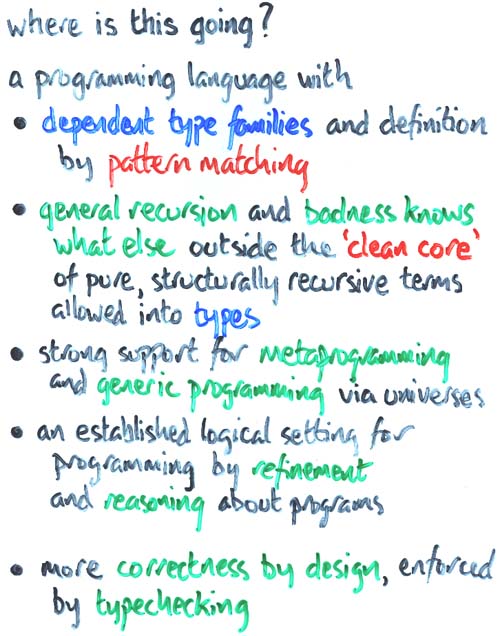 where is this going?
a programming language with
• dependent type families and definition
by pattern matching
• general recursion and badness knows
what else outside the 'clean core'
of pure, structurally recursive terms
allowed into types
• strong support for metaprogramming
and generic programming via universes
• an established logical setting for
programming by refinement
and reasoning about programs
• more correctness by design, enforced
by typechecking